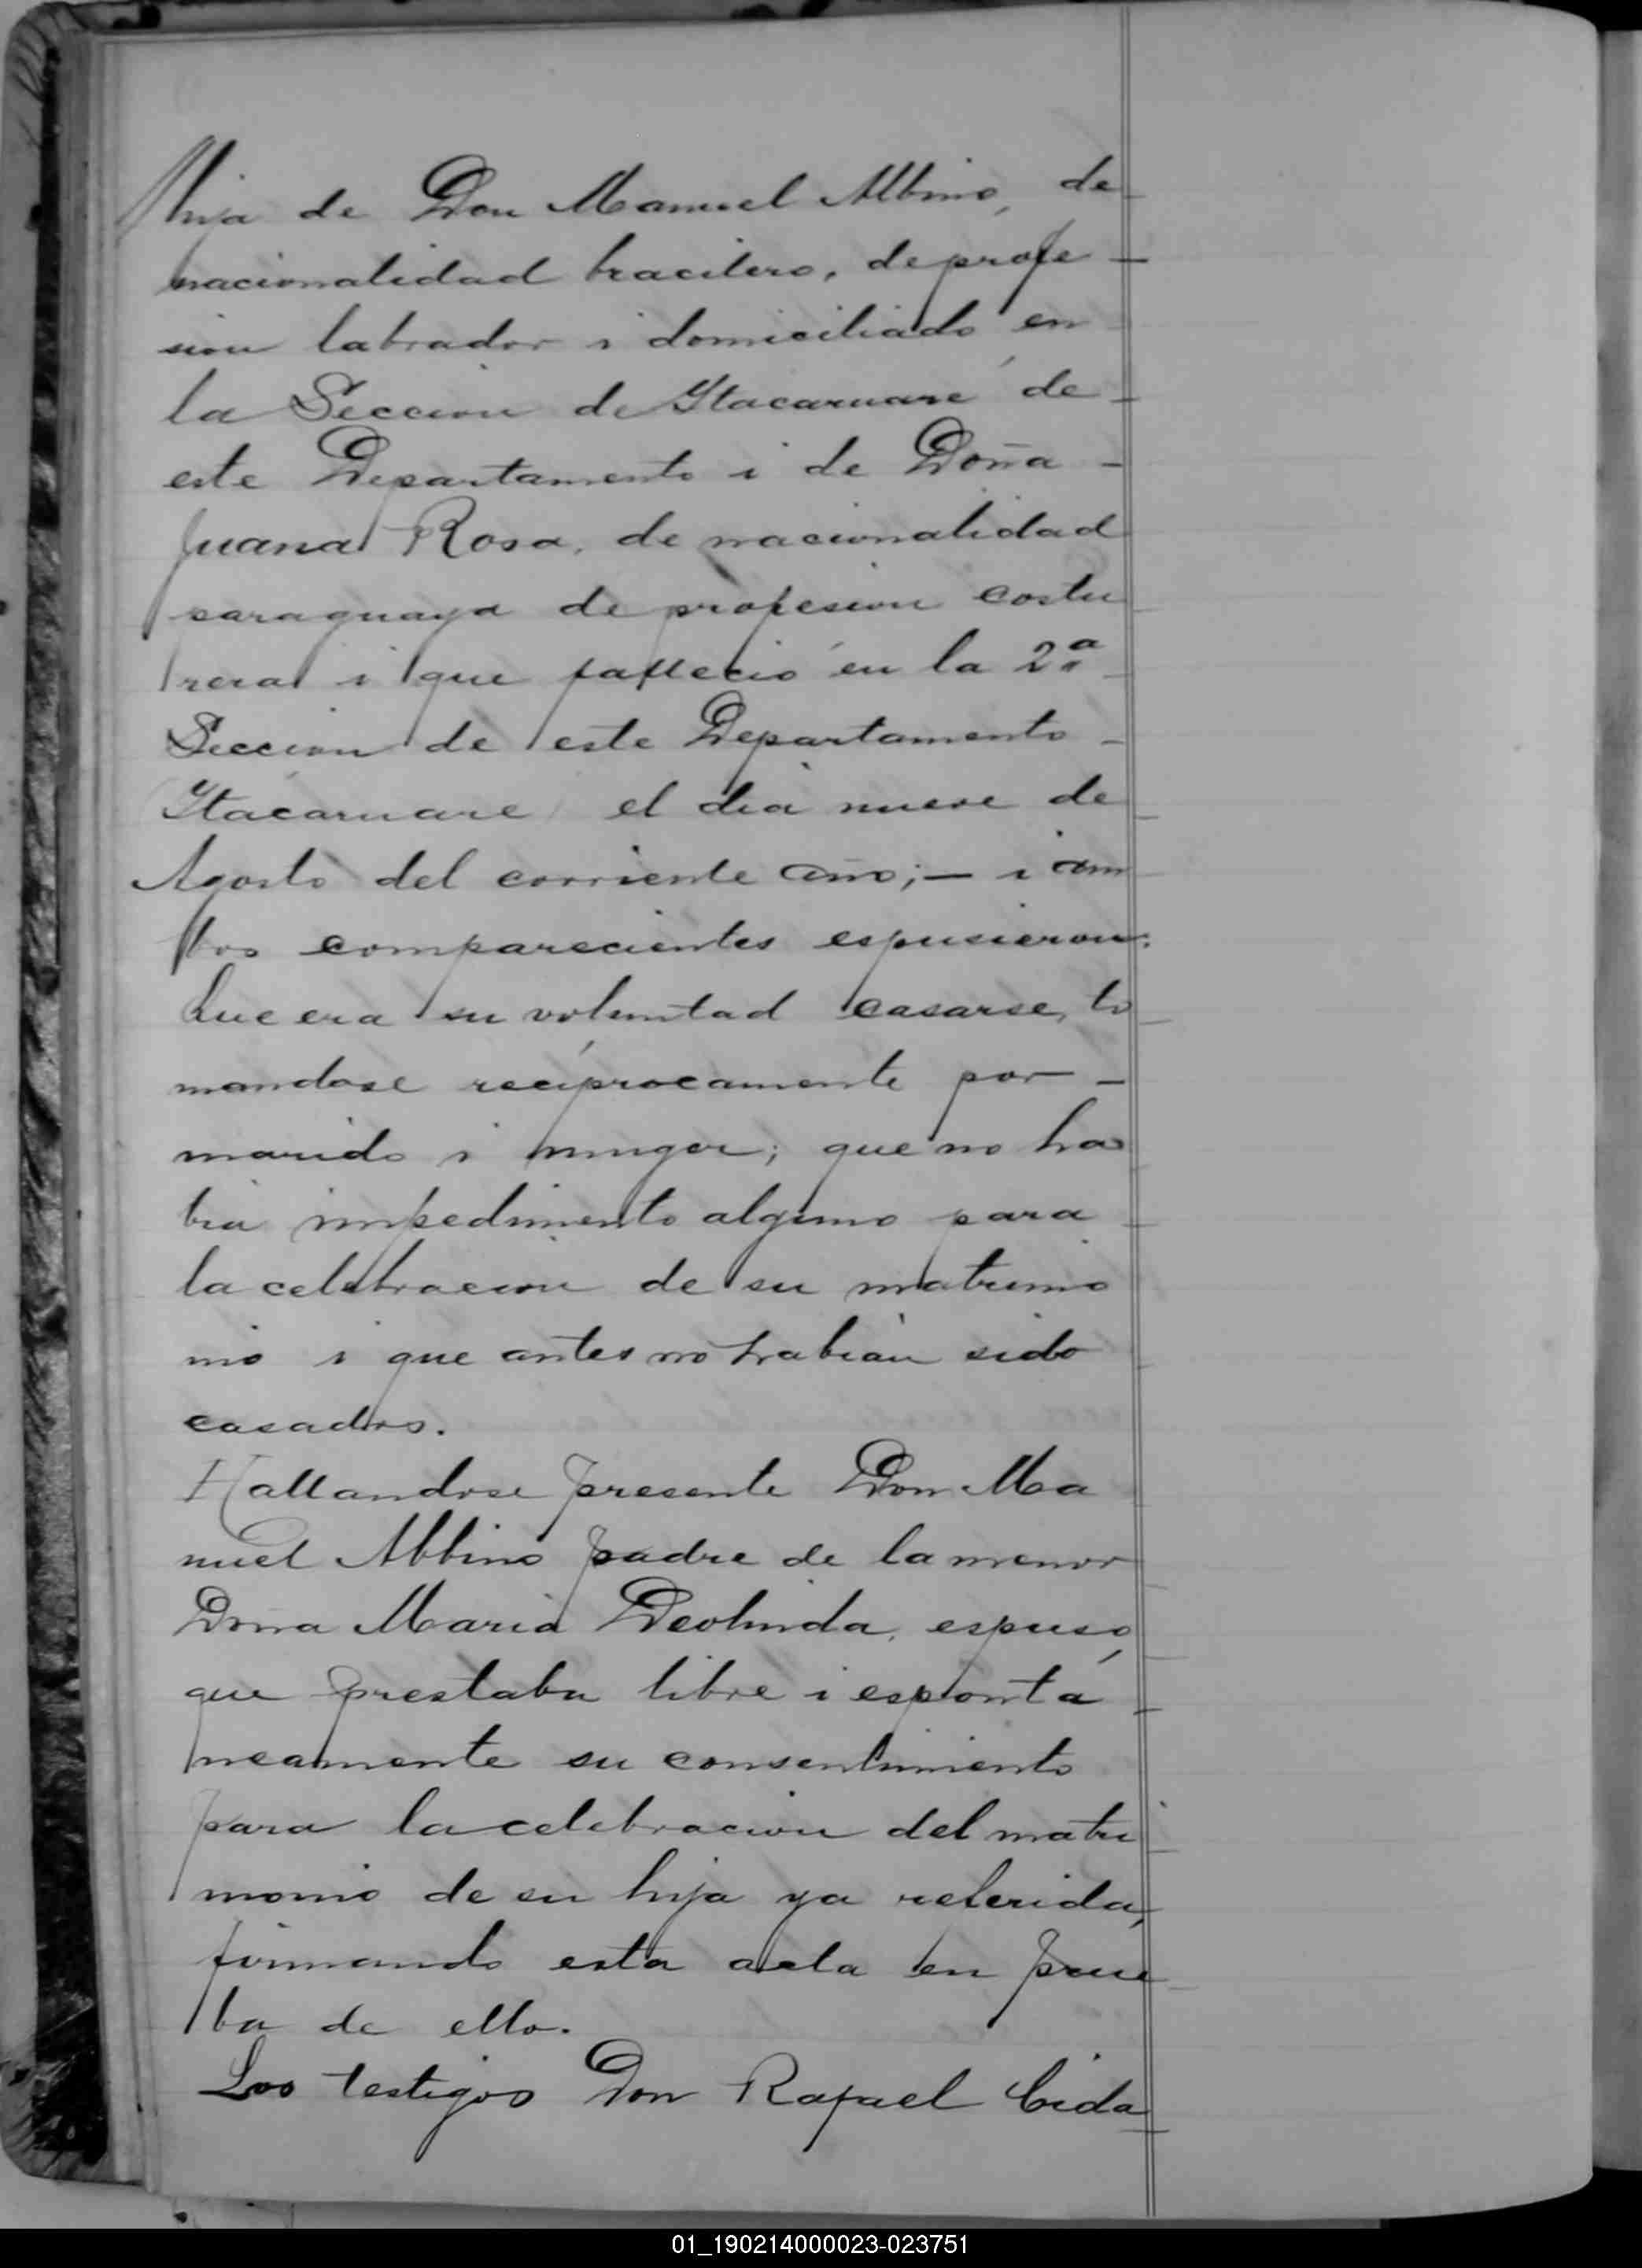 hija de Don Manuel Albino, de
nacionalidad bracilero, de profe
sion labrador i domiciliado en
la Seccion de Ytacaruaré de
este Departamento i de Doña
Juana Rosa, de nacionalidad
paraguaya de profesion costu
rera i que falleció en la 2ª
Seccion de este Departamento
Ytacaruare el dia nueve de
Agosto del corriente año;— i am
bos comparecientes espusieron:
Que era su voluntad casarse, to
mandose reciprocamente por
marido i muger; que no ha
bia impedimento alguno para
la celebracion de su matrimo
nio i que antes no habian sido
casados.
Hallandose presente Don Ma
nuel Albino padre de la menor
Doña Maria Deolinda, espuso,
que prestaba libre i espontá
neamente su consentimiento
para la celebracion del matri
monio de su hija ya referida,
firmando esta acta en prue
ba de ello.
Los testigos Don Rafael Cida
01_190214000023-023751